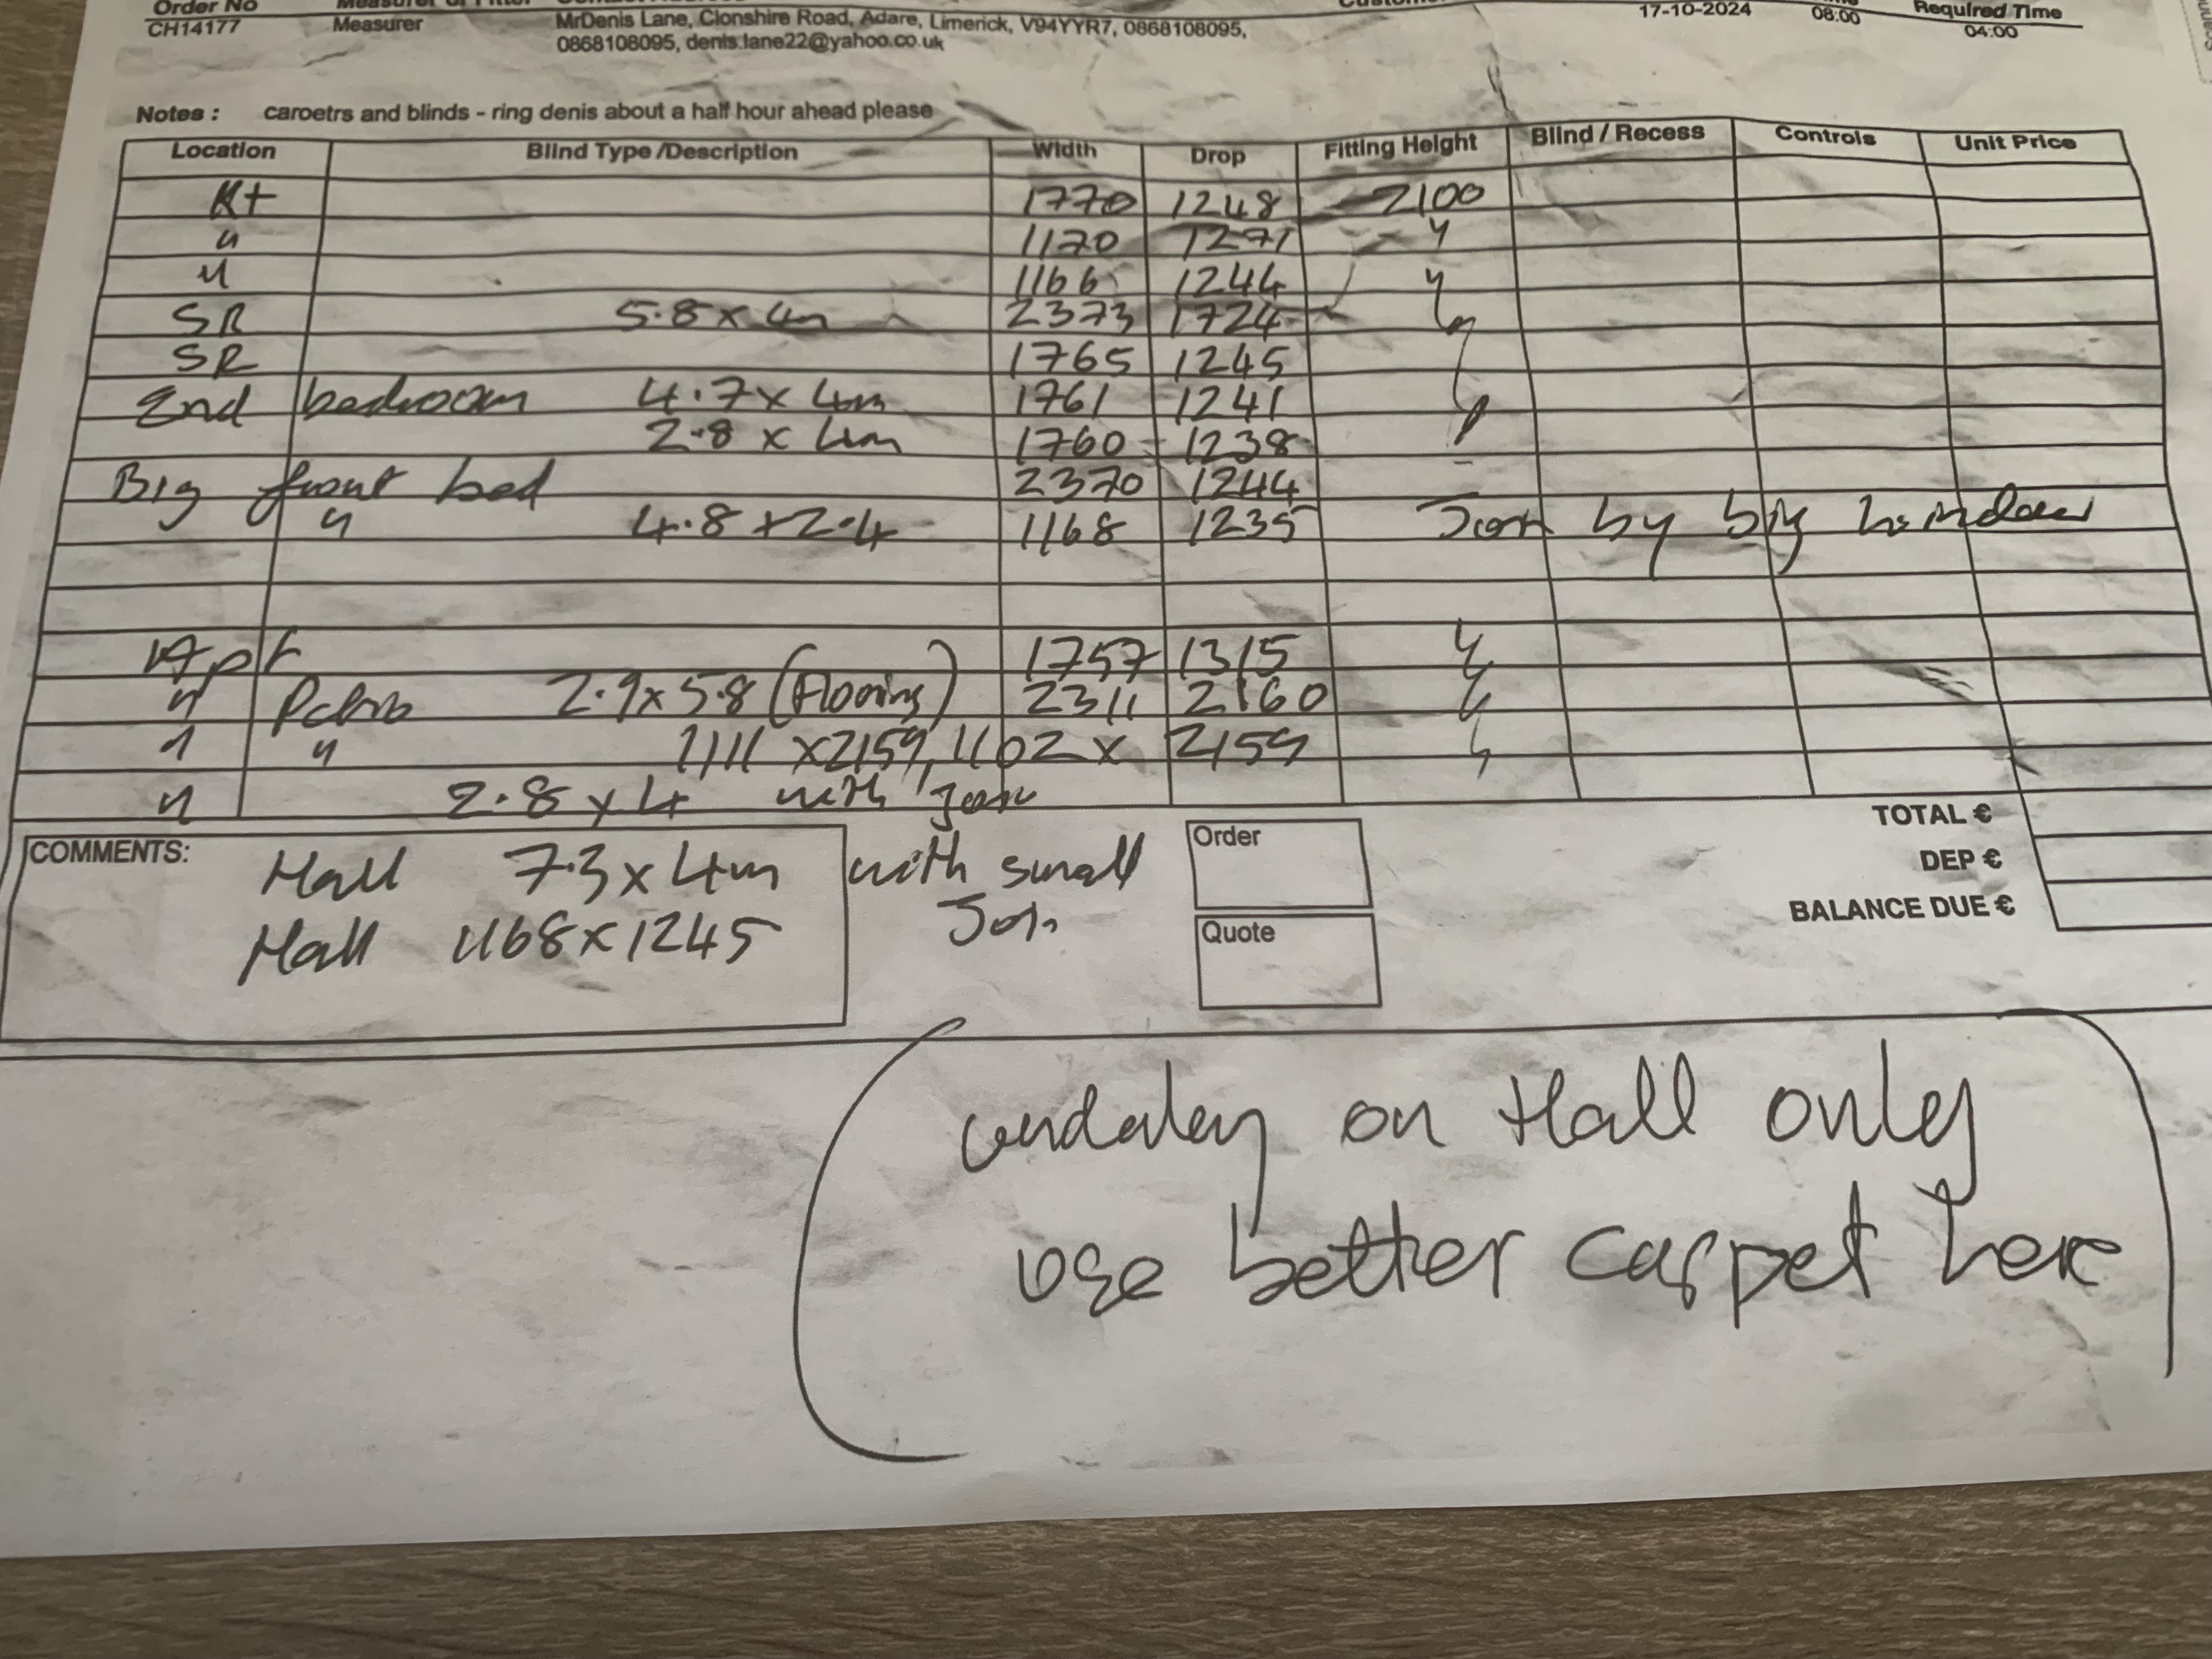 Order No Measurer or Fitter
CH14177 Measurer MrDenis Lane, Clonshire Road, Adare, Limerick, V94YYR7, 0868108095, 17-10-2024 08:00 Required Time
0868108095, denis.lane22@yahoo.co.uk 04:00
Notes : caroetrs and blinds - ring denis about a half hour ahead please
Location Blind Type /Description Width Drop Fitting Height Blind / Recess Controls Unit Price
Kt 1770 1248 2100
" 1170 1271 "
" 1166 1244 "
SR 5.8 x 4m 2373 1724 "
SR 1765 1245
End bedroom 4.7 x 4m 1761 1241
2.8 x 4m 1760 1238
Big front bed 2370 1244
" 4.8 x 2.4 1168 1235 Join by big window
Apt 1757 1315 "
" Patio 2.9 x 5.8 (Flooring) 2311 2160 "
" " 1111 x 2159, 1102 x 2159 "
" 2.8 x 4 with join
TOTAL €
COMMENTS: Hall 7.3 x 4m with small Order
DEP €
Hall 1168 x 1245 Join Quote
BALANCE DUE €
underlay on Hall only
use better carpet here